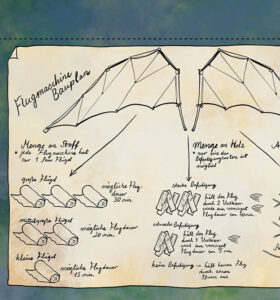 Flugmaschine
Bauplan
Menge an Stoff
* jede Flugmaschine hat
nur 1 Paar Flügel
große Flügel
mögliche Flug-
dauer
30 min.
mittelgroße Flügel
mögliche Flugdauer
20 min.
kleine Flügel
mögliche Flugdauer
15 min.
Menge an Holz
* nur eine
möglich
starke Befestigung
hält den Flug
durch 2
und verringert
Flugdauer um
schwache Befestigung
hält den Flug
durch 1
und verringert
Flugdauer um 2 min.
keine Befestigung = hält keinen Flug
durch einen
Sturm aus